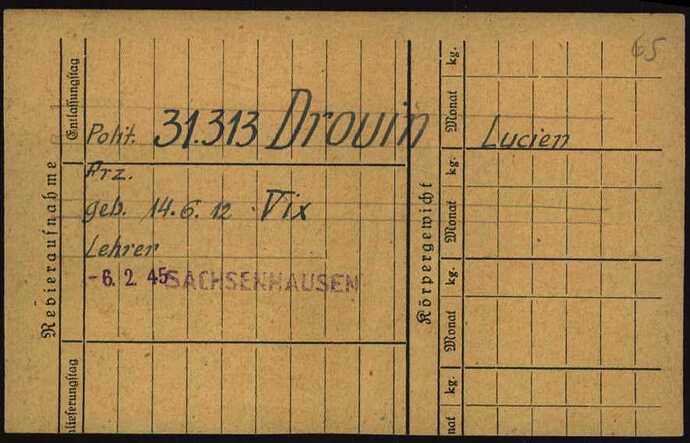 65
Polit. 31.313 Drouin Lucien
Frz.
geb. 14.6.12 Vix
Lehrer
-6. 2. 45 SACHSENHAUSEN
Revieraufnahme
Entlassungstag
lieferungstag
Körpergewicht
kg.
Monat
kg.
Monat
kg.
Monat
kg.
nat